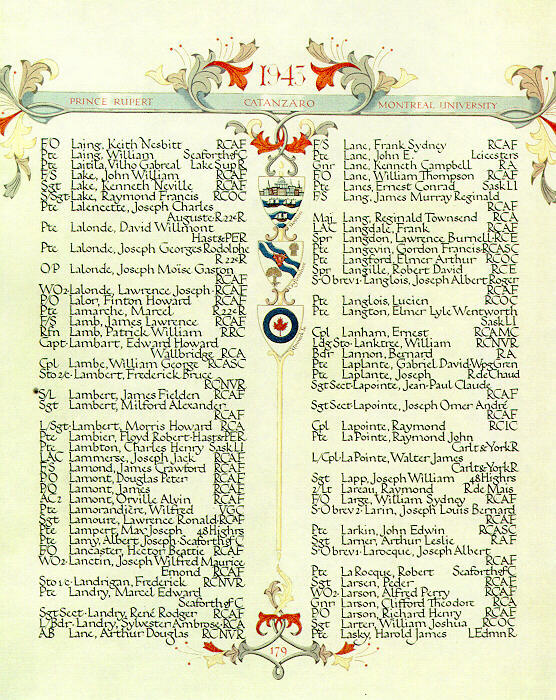 1943
PRINCE RUPERT CATANZARO MONTREAL UNIVERSITY
F/O Laing, Keith Nesbitt RCAF
Pte Laing, William Seaforth of C
Pte Laitila, Vilho Gabreal Lake Sup R
F/S Lake, John William RCAF
Sgt Lake, Kenneth Neville RCAF
S/Sgt Lake, Raymond Francis RCOC
Pte Lalencette, Joseph Charles
Auguste R 22e R
Pte Lalonde, David Willmont
Hast & PER
Pte Lalonde, Joseph Georges Rodolphe
R 22e R
O'P Lalonde, Joseph Moise Gaston
RCAF
WO2 Lalonde, Lawrence Joseph RCAF
P/O Lalor, Finton Howard RCAF
Pte Lamarche, Marcel R 22e R
F/S Lamb, James Lawrence RCAF
Rfn Lamb, Patrick William RRC
Capt Lambart, Edward Howard
Wallbridge RCA
Cpl Lambe, William George RCASC
Sto 2c Lambert, Frederick Bruce
RCNVR
S/L Lambert, James Fielden RCAF
Sgt Lambert, Milford Alexander
RCAF
L/Sgt Lambert, Morris Howard RCA
Pte Lambier, Floyd Robert Hast & PER
Pte Lambton, Charles Henry Sask L I
LAC Lammerse, Joseph Jack RCAF
F/S Lamond, James Crawford RCAF
P/O Lamont, Douglas Peter RCAF
P/O Lamont, James RCAF
AC2 Lamont, Orville Alvin RCAF
Pte Lamorandière, Wilfred VGC
Sgt Lamoure, Lawrence Ronald RCAF
Pte Lampert, Max Joseph 48 Highrs
Pte Lamy, Albert Joseph Seaforth of C
F/O Lancaster, Hector Beattie RCAF
WO2 Lanctin, Joseph Wilfred Maurice
Emond RCAF
Sto 1c Landrigan, Frederick RCNVR
Pte Landry, Marcel Edward
Seaforth of C
Sgt Sect Landry, René Rodger RCAF
L/Bdr Landry, Sylvester Ambrose RCA
AB Lane, Arthur Douglas RCNVR
F/S Lane, Frank Sydney RCAF
Pte Lane, John E. Leicesters
Gnr Lane, Kenneth Campbell RA
F/O Lane, William Thompson RCAF
Pte Lanes, Ernest Conrad Sask L I
F/S Lang, James Murray Reginald
RCAF
Maj Lang, Reginald Townsend RCA
LAC Langdale, Frank RCAF
Spr Langdon, Lawrence Burnell RCE
Pte Langevin, Gordon Francis RCASC
Pte Langford, Elmer Arthur RCOC
Spr Langille, Robert David RCE
S-O brev 1 Langlois, Joseph Albert Roger
RCAF
Pte Langlois, Lucien RCOC
Pte Langton, Elmer Lyle Wentworth
Sask L I
Cpl Lanham, Ernest RCAMC
Ldg Sto Lanktree, William RCNVR
Bdr Lannon, Bernard RA
Pte LaPlante, Gabriel David Wpg Gren
Pte Laplante, Joseph R de Chaud
Sgt Sect Lapointe, Jean-Paul Claude
RCAF
Sgt Sect Lapointe, Joseph Omer André
RCAF
Cpl Lapointe, Raymond RCIC
Pte LaPointe, Raymond John
Carlt & York R
L/Cpl LaPointe, Walter James
Carlt & York R
Sgt Lapp, Joseph William 48 Highrs
2/Lt Lareau, Raymond R de Mais
F/O Large, William Sydney RCAF
S-O brev 2 Larin, Joseph Louis Bernard
RCAF
Pte Larkin, John Edwin RCASC
Sgt Larner, Arthur Leslie RAF
S-O brev 1 Larocque, Joseph Albert
RCAF
Pte LaRocque, Robert Seaforth of C
Sgt Larsen, Peder RCAF
WO2 Larson, Alfred Perry RCAF
Gnr Larson, Clifford Theodore RCA
P/O Larson, Richard Henry RCAF
Sgt Larter, William Joshua RCOC
Pte Lasky, Harold James L Edmn R
179